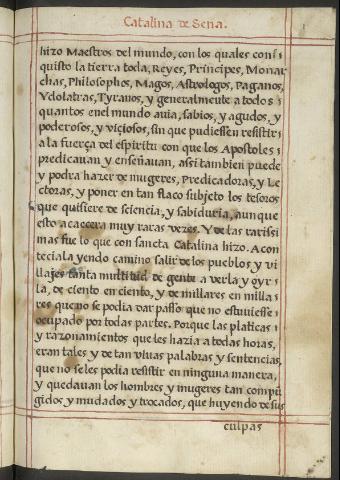 Catalina de Sena.
hizo Maestros del mundo, con los quales conq̃
quisto la tierra toda, Reyes, Principes, Monar
chas, Philosophos, Magos, Astrologos, Paganos,
Ydolatras, Tyranos, y generalmente a todos
quantos en el mundo auia, sabios, y agudos, y
poderosos, y viçiosos, sin que pudiessen resistir
a la fuerça del espiritu con que los Apostoles
predicauan y enseñauan, assi tambien puede
y podra hazer de mugeres, Predicadoras, y Le
ctoras, y poner en tan flaco subjeto los tesoros
que quisiere de sciencia, y sabiduria, aunque
esto acaecera muy raras vezes. Y de las rarissi
mas fue lo que con sancta Catalina hizo. Acon
teciala yendo camino salir de los pueblos y vi
llajes tanta multitud de gente a verla y oyr
la, de ciento en ciento, y de millares en milla
res que no se podia dar passo que no estuuiesse
ocupado por todas partes. Porque las platicas
y razonamientos que les hazia a todas horas,
eran tales y de tan viuas palabras y sentencias,
que no se les podia resistir en ninguna manera,
y quedauan los hombres y mugeres tan compũ
gidos y mudados y trocados, que huyendo de sus
culpas